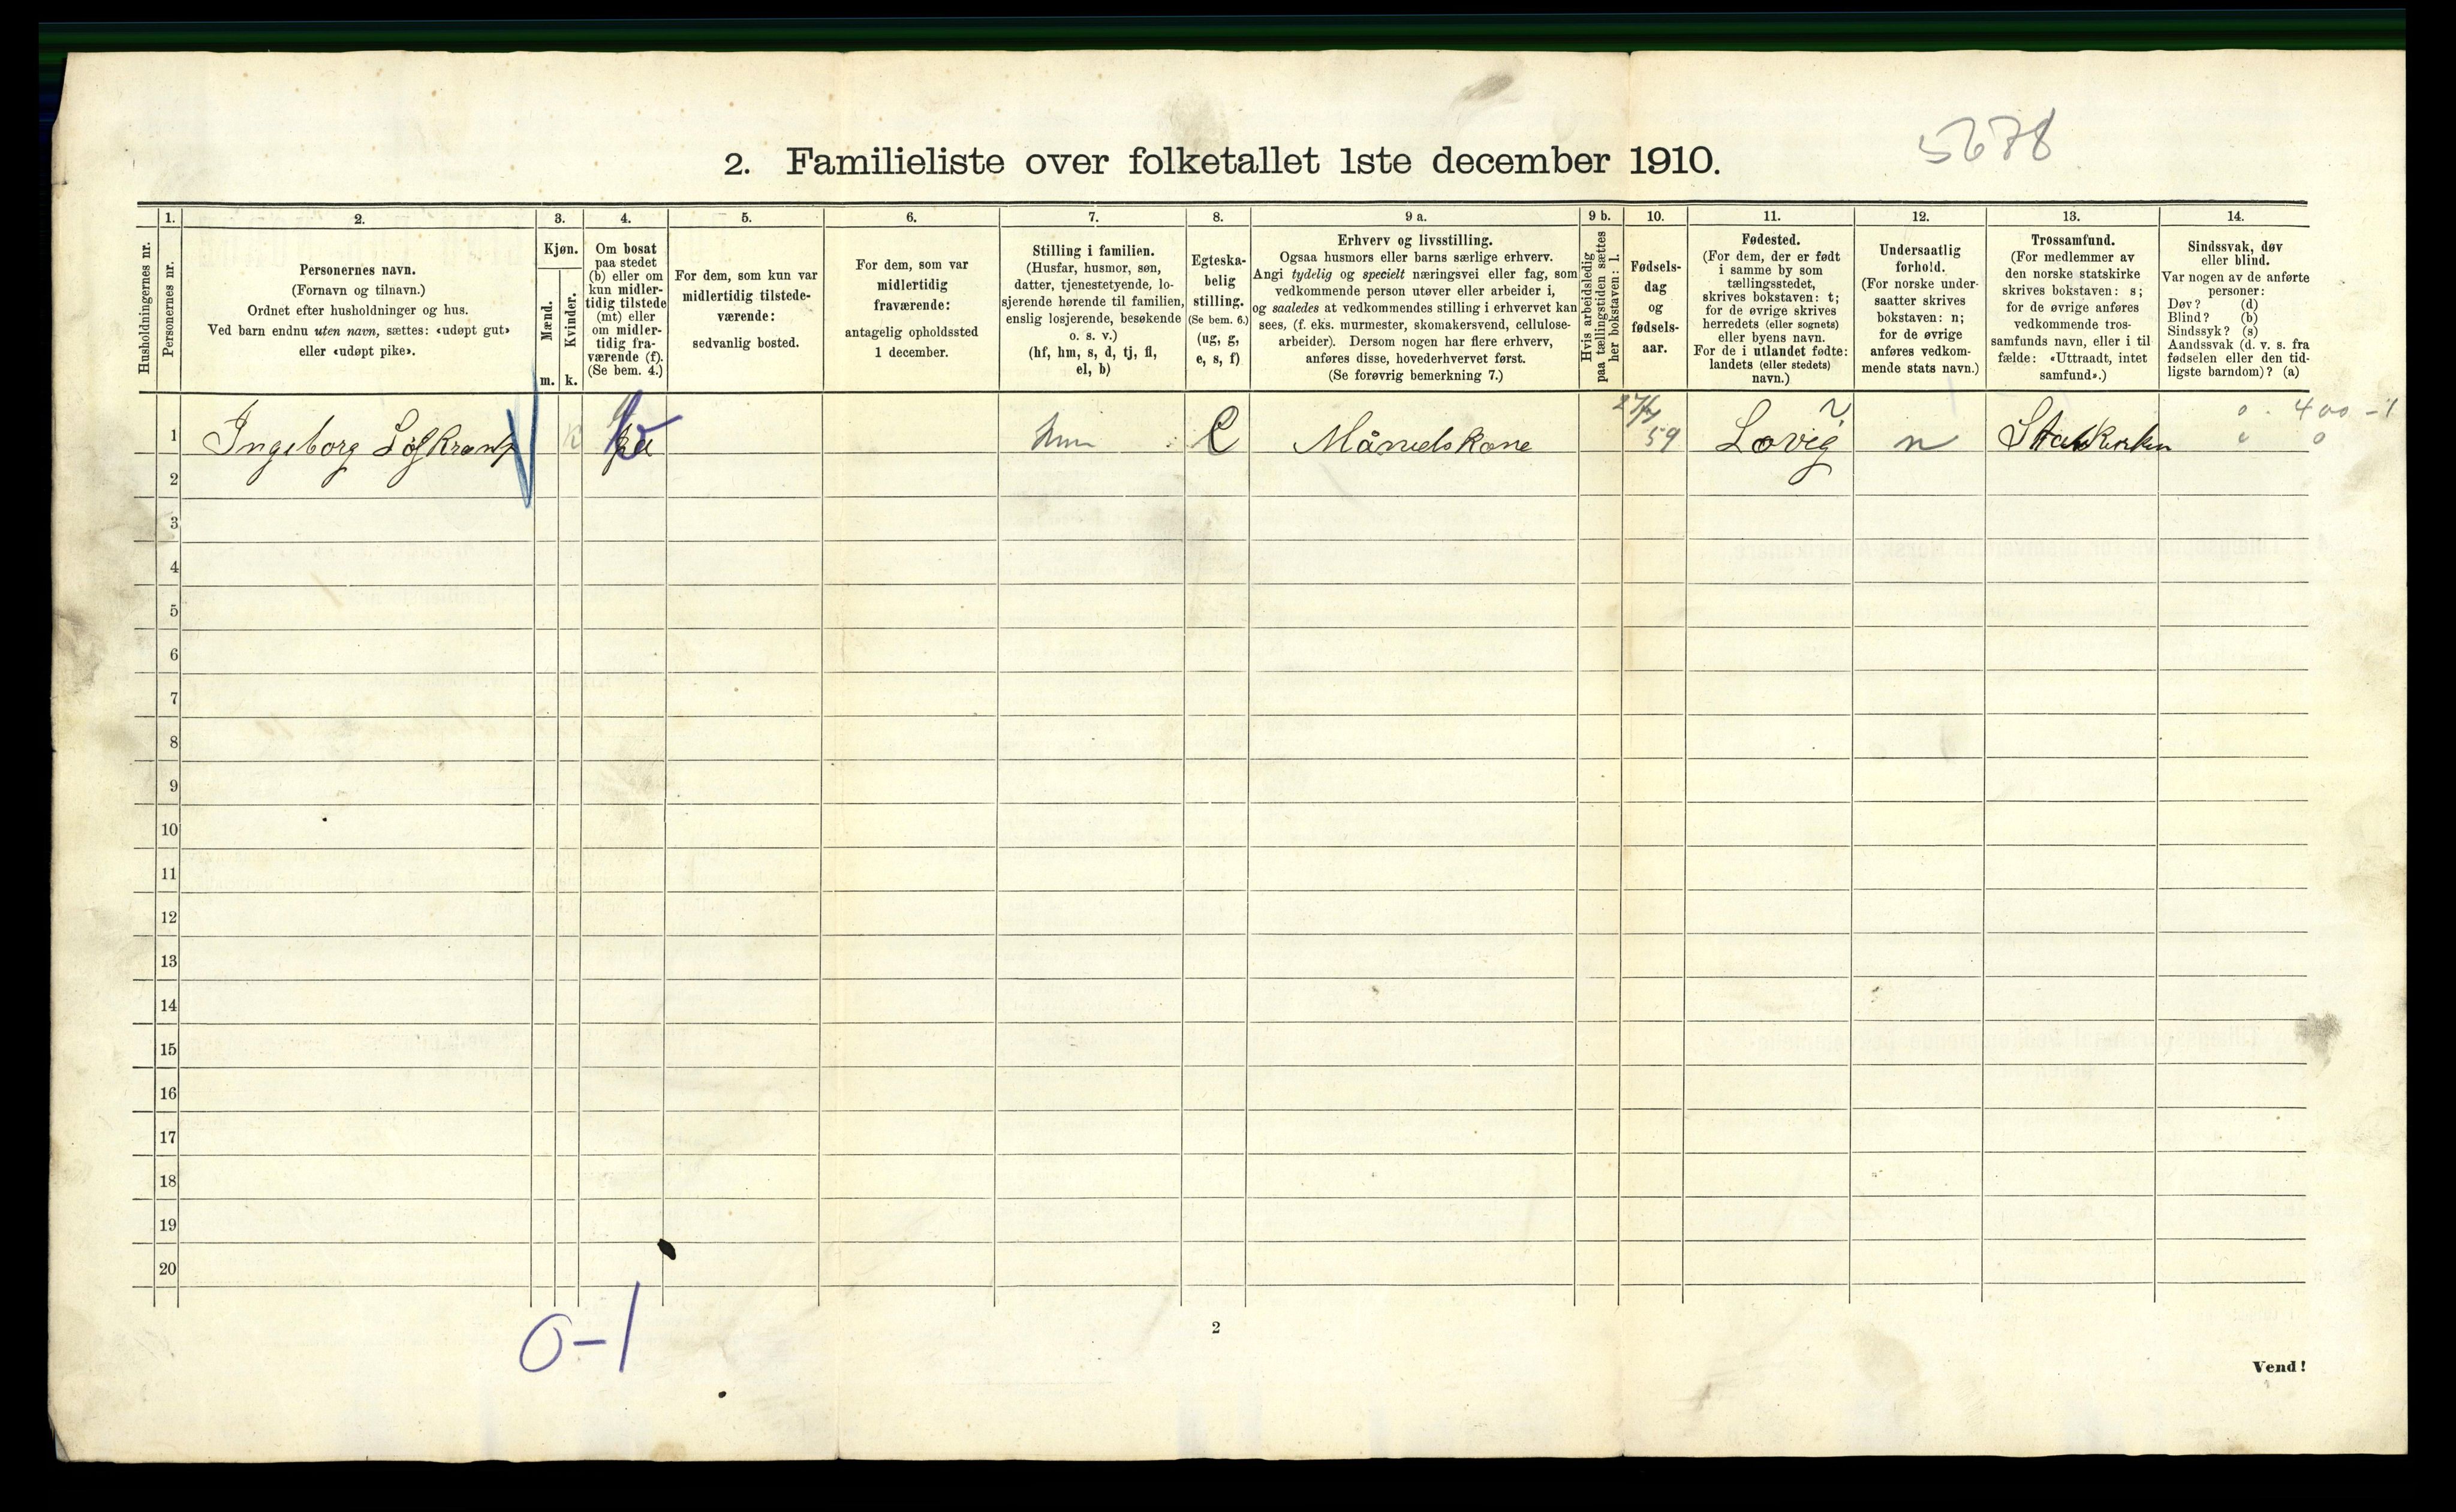 5678
2. Familieliste over folketallet 1ste december 1910.
Husholdningernes nr.
1.
Personernes nr.
2.
Personernes navn.
(Fornavn og tilnavn.)
Ordnet efter husholdninger og hus.
Ved barn endnu uten navn, sættes: «udøpt gut»
eller «udøpt pike».
3.
Kjøn.
Mænd.
m.
Kvinder.
k.
4.
Om bosat
paa stedet
(b) eller om
kun midler-
tidig tilstede
(mt) eller
om midler-
tidig fra-
værende (f).
(Se bem. 4.)
5.
For dem, som kun var
midlertidig tilstede-
værende:
sedvanlig bosted.
6.
For dem, som var
midlertidig
fraværende:
antagelig opholdssted
1 december.
7.
Stilling i familien.
(Husfar, husmor, søn,
datter, tjenestetyende, lo-
sjerende hørende til familien,
enslig losjerende, besøkende
o. s. v.)
(hf, hm, s, d, tj, fl,
el, b)
8.
Egteska-
belig
stilling.
(Se bem. 6.)
(ug, g,
e, s, f)
9 a.
Erhverv og livsstilling.
Ogsaa husmors eller barns særlige erhverv.
Angi tydelig og specielt næringsvei eller fag, som
vedkommende person utøver eller arbeider i,
og saaledes at vedkommendes stilling i erhvervet kan
sees, (f. eks. murmester, skomakersvend, cellulose-
arbeider). Dersom nogen har flere erhverv,
anføres disse, hovederhvervet først.
(Se forøvrig bemerkning 7.)
9 b.
Hvis arbeidsledig
paa tællingstiden sættes
her bokstaven: l.
10.
Fødsels-
dag
og
fødsels-
aar.
11.
Fødested.
(For dem, der er født
i samme by som
tællingsstedet,
skrives bokstaven: t;
for de øvrige skrives
herredets (eller sognets)
eller byens navn.
For de i utlandet fødte:
landets (eller stedets)
navn.)
12.
Undersaatlig
forhold.
(For norske under-
saatter skrives
bokstaven: n;
for de øvrige
anføres vedkom-
mende stats navn.)
13.
Trossamfund.
(For medlemmer av
den norske statskirke
skrives bokstaven: s;
for de øvrige anføres
vedkommende tros-
samfunds navn, eller i til-
fælde: «Uttraadt, intet
samfund».)
14.
Sindssvak, døv
eller blind.
Var nogen av de anførte
personer:
Døv? (d)
Blind? (b)
Sindssyk? (s)
Aandssvak (d. v. s. fra
fødselen eller den tid-
ligste barndom)? (a)
0 . 400 - 1
1 Ingeborg k b e 59 n 0 0
2
3
4
5
6
7
8
9
10
11
12
13
14
15
16
17
18
19
20
0-1
2
Vend!